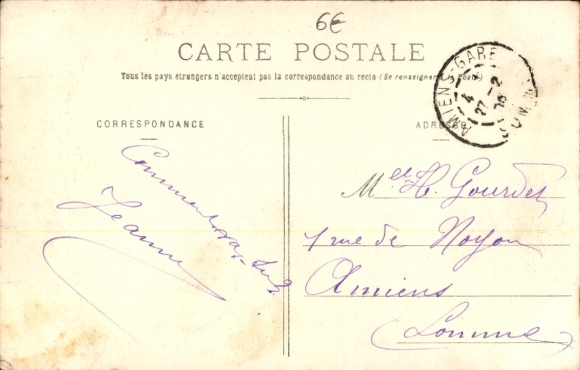 6€
CARTE POSTALE
Tous les pays étrangers n'acceptent pas la correspondance au recto (Se renseigner à la Poste)
CORRESPONDANCE
ADRESSE
AMIENS-GARE
4
27-2
SOMME
Comment vas-tu?
Jeanne
Melle H. Gourdet
1 rue de Noyon
Amiens
Somme